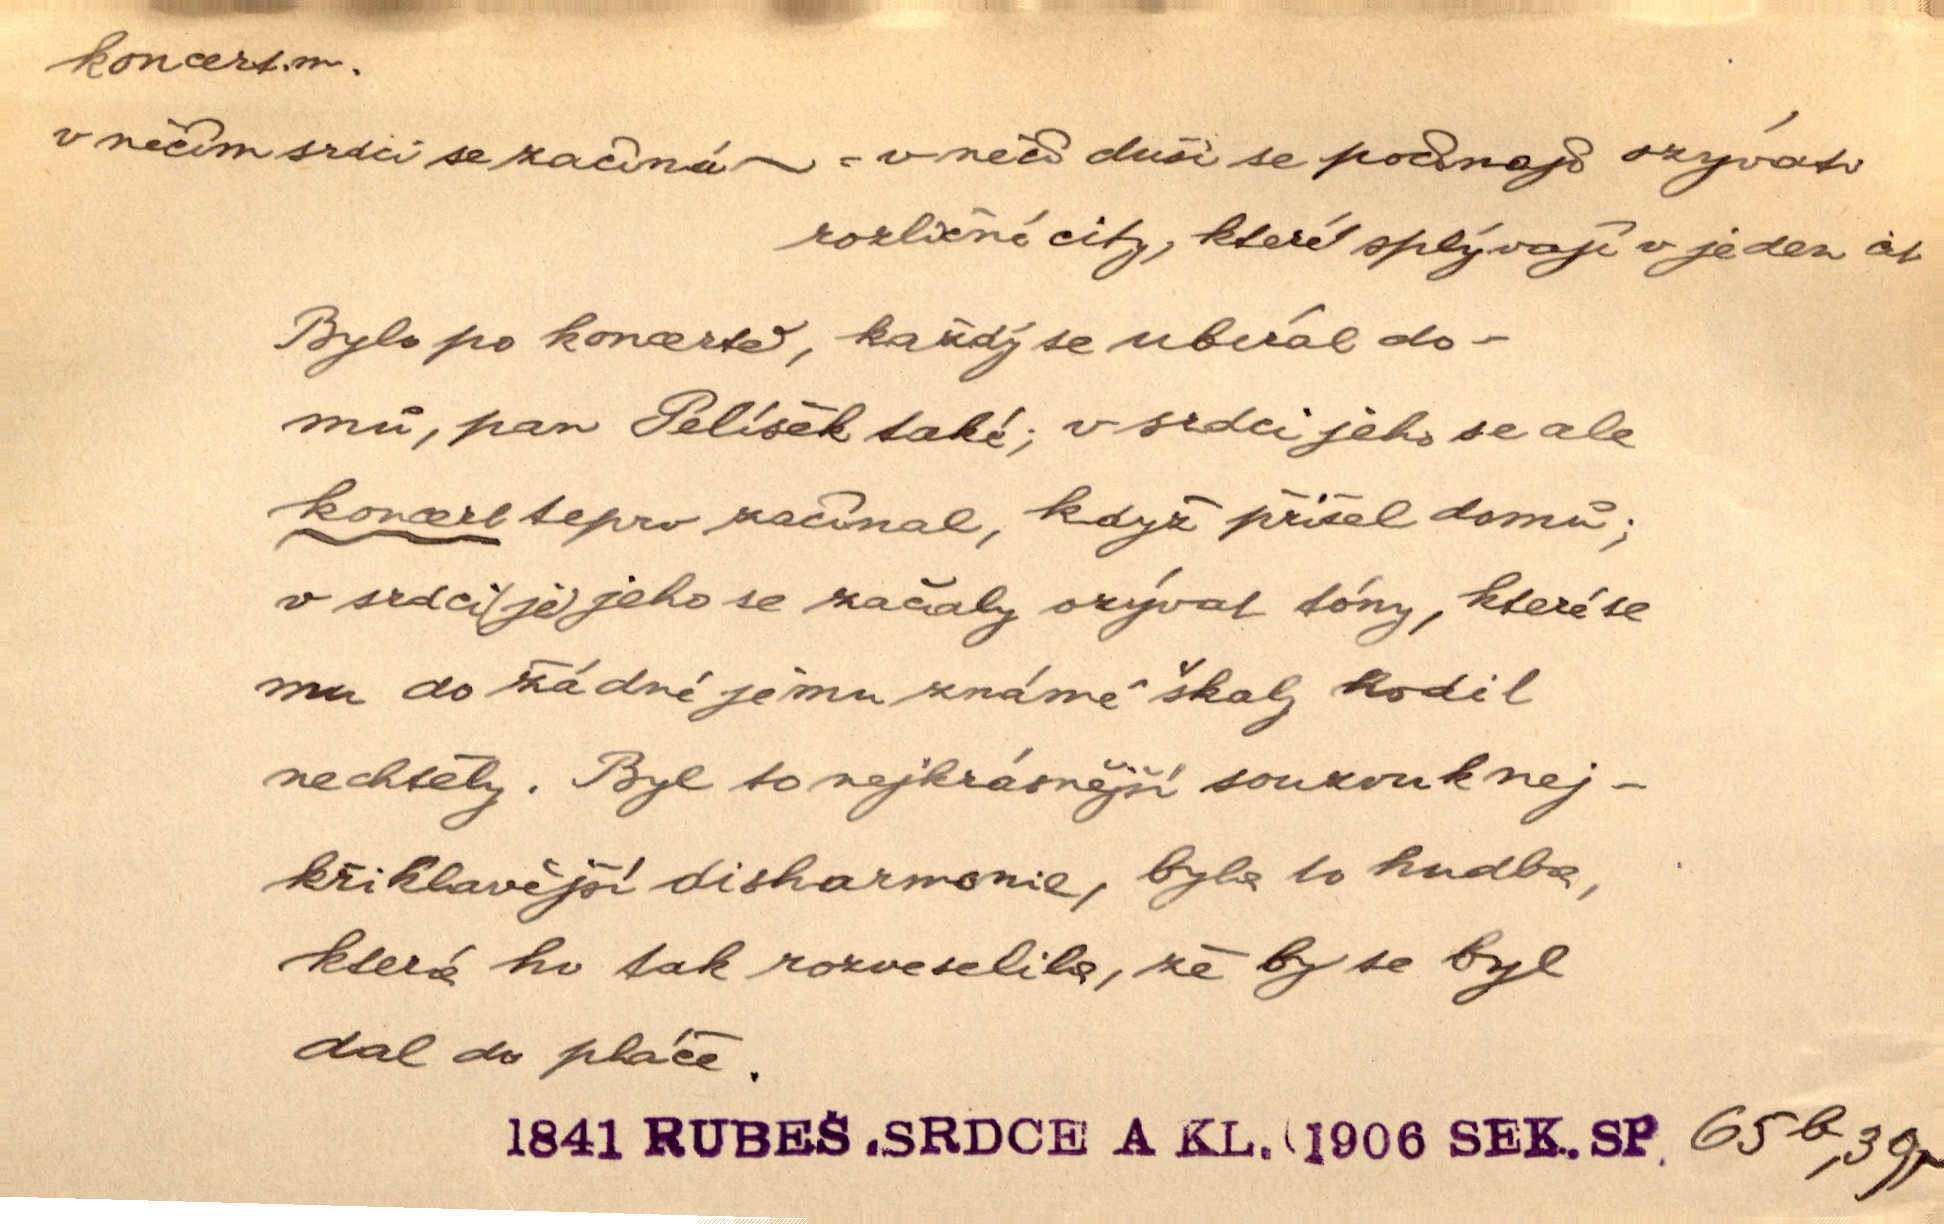 koncert. m.
v něčím srdci se začíná ~ = v něčí duši se počínají ozývati
rozličné city, které splývají v jeden cit
Bylo po koncertě, každý se ubíral do-
mů, pan Pelíšek také; v srdci jeho se ale
koncert teprv začínal, když přišel domů;
v srdci (je) jeho se začaly ozývat tóny, které se
mu do žádné jemu známé škaly hodit
nechtěly. Byl to nejkrásnější souzvuk nej-
křiklavější disharmonie, byla to hudba,
která ho tak rozveselila, že by se byl
dal do pláče.
1841 RUBEŠ .SRDCE A KL. (1906 SEK. SP. 65b, 39,